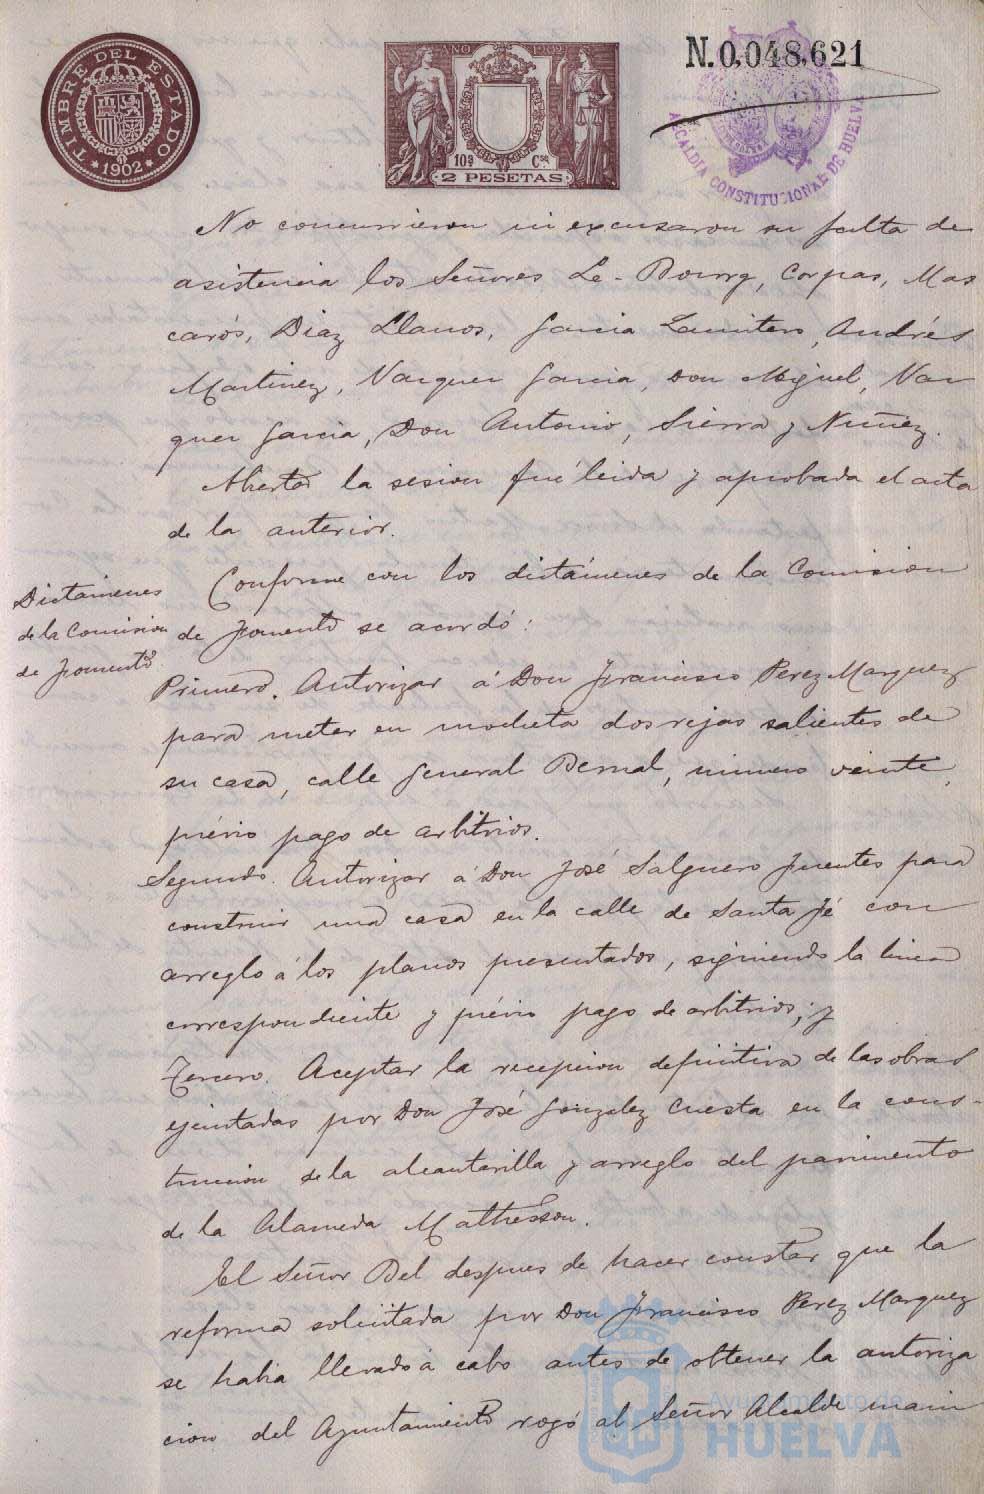 TIMBRE DEL ESTADO
* 1902 *
AÑO 1902
10ª Cse
2 PESETAS
N.0,048,621
ALCALDIA CONSTITUCIONAL DE HUELVA
No concurrieron ni excusaron su falta de
asistencia los Señores Le-Bourg, Corpas, Mas
carós, Diaz Llanos, Garcia Ramirez, Andrés
Martinez, Vazquez Garcia, Don Miguel, Vaz
quez Garcia, Don Antonio, Sierra y Nuñez.
Abierta la sesion fué leida y aprobada el acta
de la anterior.
Dictámenes
de la Comision
de Fomento
Conforme con los dictámenes de la Comision
de Fomento se acordó:
Primero. Autorizar á Don Francisco Perez Marquez
para meter en mocheta dos rejas salientes de
su casa, calle General Bernal, número veinte,
prévio pago de arbitrios.
Segundo. Autorizar á Don José Salguero Fuentes para
construir una casa en la calle de Santa Fé con
arreglo á los planos presentados, siguiendo la linea
correspondiente y prévio pago de arbitrios; y
Tercero. Aceptar la recepcion definitiva de las obras
ejecutadas por Don José Gonzalez Cuesta en la cons-
truccion de la alcantarilla y arreglo del pavimento
de la Alameda Mathesson.
El Señor Bel despues de hacer constar que la
reforma solicitada por Don Francisco Perez Marquez
se habia llevado á cabo antes de obtener la autoriza
cion del Ayuntamiento rogó al Señor Alcalde
Ayuntamiento de
HUELVA